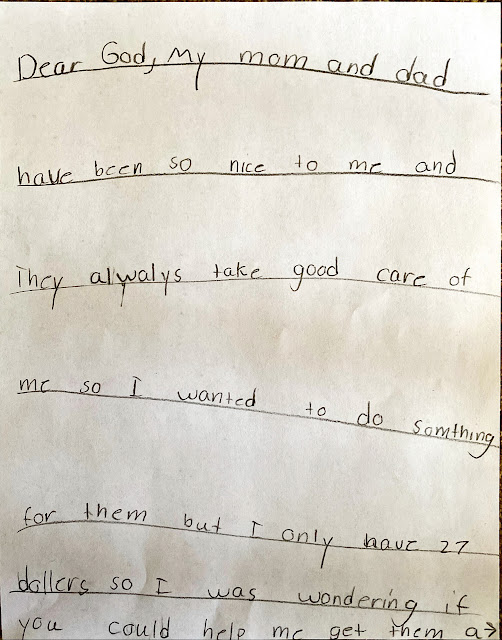 Dear God, My mom and dad
have been so nice to me and
They alwalys take good care of
me so I wanted to do somthing
for them but I only have 27
dollers so I was wondering if
you could help me get them a